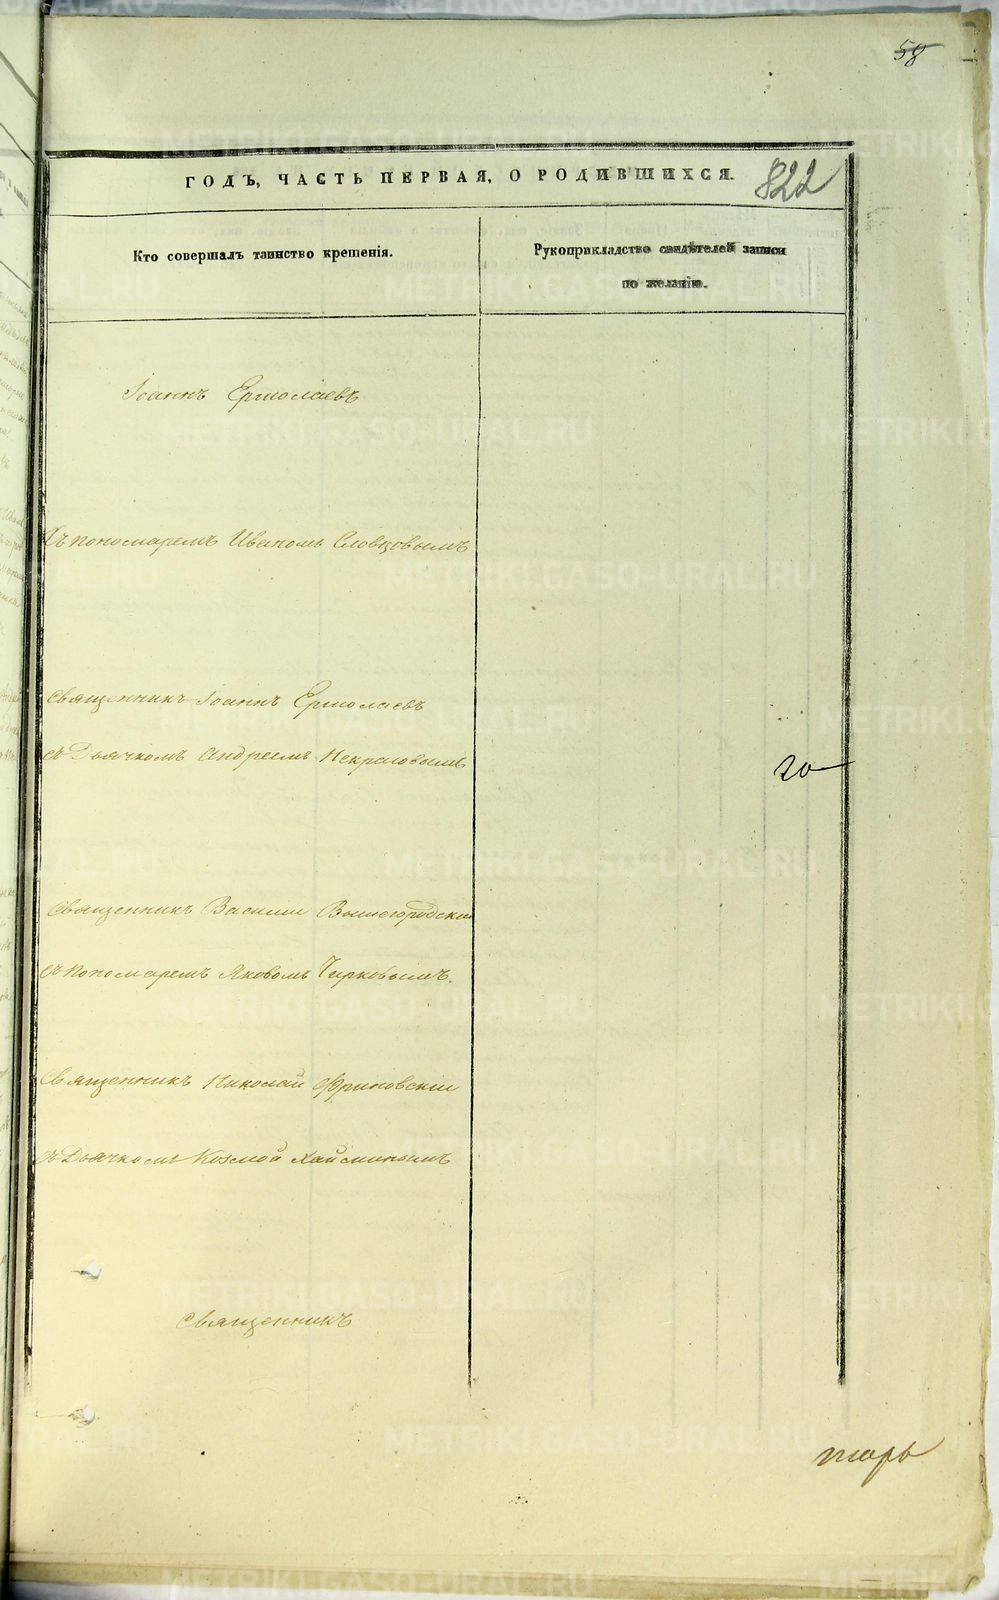 58
ГОДЪ, ЧАСТЬ ПЕРВАЯ, О РОДИВШИХСЯ.
822
Кто совершалъ таинство крещенія.
Рукоприкладство свидѣтелей записи
по желанію.
Іоаннъ Ермолаевъ
Съ пономаремъ Иваномъ Словцовымъ
Священникъ Іоаннъ Ермолаевъ
съ Дьячкомъ Андреемъ Некрасовымъ
20
Священникъ Василій Вышегородскій
съ пономаремъ Яковомъ Чирковымъ.
Священникъ Николай Фриновскій
съ Дьячкомъ Козмой
Священникъ
METRIKI.GASO-URAL.RU